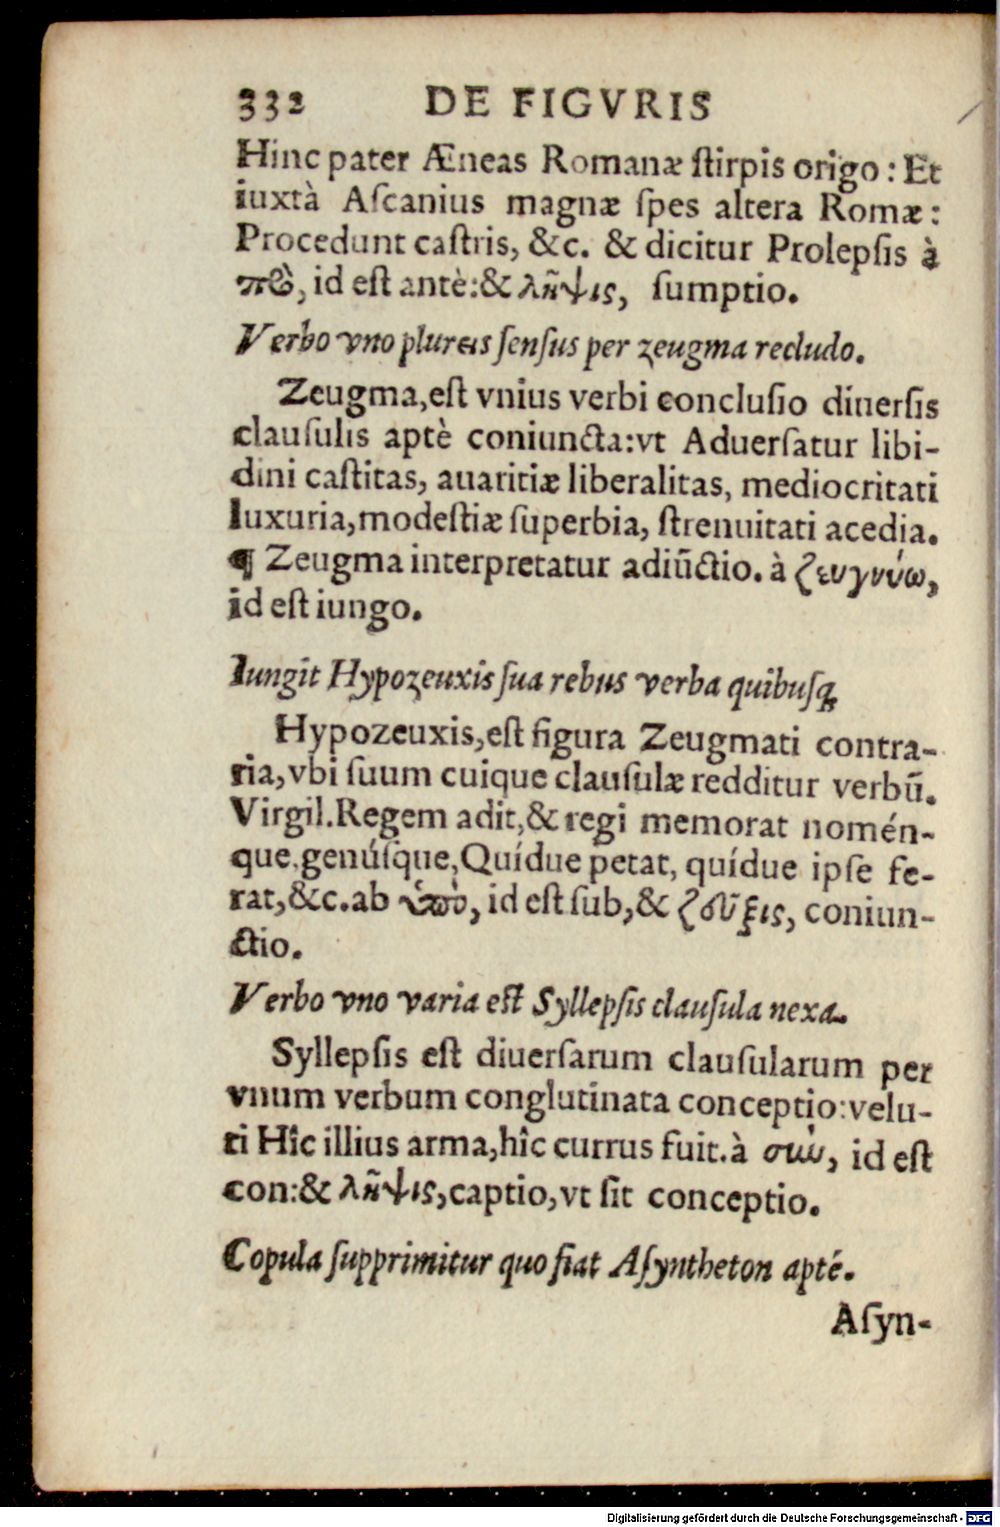 332 DE FIGVRIS
Hinc pater Æneas Romanæ ſtirpis origo : Et
iuxtà Aſcanius magnæ ſpes altera Romæ :
Procedunt caſtris, &c. & dicitur Prolepſis à
πϱὸ, id eſt antè:& λῆψις, ſumptio.
Verbo vno plureis ſenſus per zeugma recludo.
Zeugma,eſt vnius verbi concluſio diuerſis
clauſulis aptè coniuncta:vt Aduerſatur libi-
dini caſtitas, auaritiæ liberalitas, mediocritati
luxuria,modeſtiæ ſuperbia, ſtrenuitati acedia.
¶ Zeugma interpretatur adiūctio. à ζευγνύω,
id eſt iungo.
Iungit Hypozeuxis ſua rebus verba quibuſq
Hypozeuxis,eſt figura Zeugmati contra-
ria,vbi ſuum cuique clauſulæ redditur verbū.
Virgil.Regem adit,& regi memorat nomén-
que.genúſque,Quídue petat, quídue ipſe fe-
rat,&c.ab ὑπὸ, id eſt ſub,& ζεῦξις, coniun-
ctio.
Verbo vno varia eſt Syllepſis clauſula nexa.
Syllepſis eſt diuerſarum clauſularum per
vnum verbum conglutinata conceptio:velu-
ti Hîc illius arma,hîc currus fuit.à σὺν, id eſt
con:& λῆψις,captio,vt ſit conceptio.
Copula ſupprimitur quo fiat Aſyntheton apté.
Aſyn-
Digitalisierung gefördert durch die Deutsche Forschungsgemeinschaft - DFG